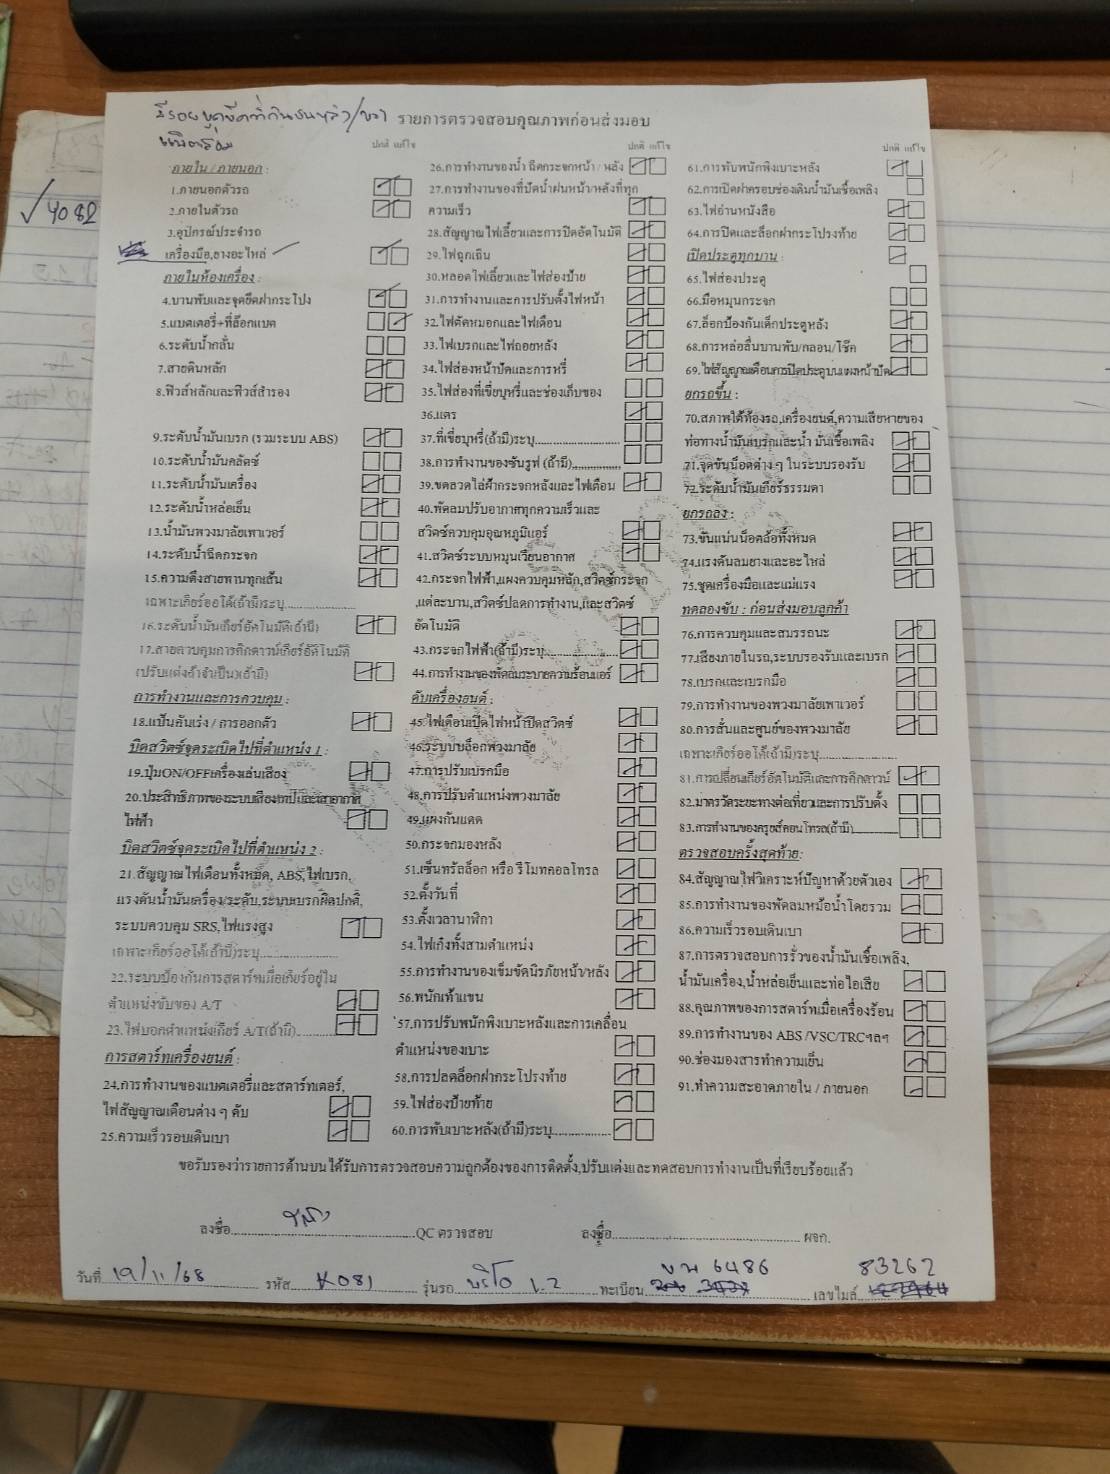 รายการตรวจสอบคุณภาพก่อนส่งมอบ
ปกติ แก้ไข
ภายใน / ภายนอก :
1.ภายนอกตัวรถ
2.ภายในตัวรถ
3.อุปกรณ์ประจำรถ
เครื่องมือ,ยางอะไหล่
ภายในห้องเครื่อง :
4.บานพับและจุดยึดฝากระโปง
5.แบตเตอรี่+ที่ล๊อกแบต
6.ระดับน้ำกลั่น
7.สายดินหลัก
8.ฟิวส์หลักและฟิวส์สำรอง
9.ระดับน้ำมันเบรก (รวมระบบ ABS)
10.ระดับน้ำมันคลัตซ์
11.ระดับน้ำมันเครื่อง
12.ระดับน้ำหล่อเย็น
13.น้ำมันพวงมาลัยเพาเวอร์
14.ระดับน้ำฉีดกระจก
15.ความตึงสายพานทุกเส้น
เฉพาะเกียร์ออโต้(ถ้ามี)ระบุ
16.ระดับน้ำมันเกียร์อัตโนมัติ(ถ้ามี)
17.สายควบคุมการคิกดาวน์เกียร์อัตโนมัติ
(ปรับแต่งถ้าจำเป็น)(ถ้ามี)
การทำงานและการควบคุม :
18.แป้นคันเร่ง / การออกตัว
บิดสวิตซ์จุดระเบิดไปที่ตำแหน่ง 1 :
19.ปุ่มON/OFFเครื่องเล่นเสียง
20.ประสิทธิภาพของระบบเสียงเทปและเสาอากาศ
ไฟฟ้า
บิดสวิตซ์จุดระเบิดไปที่ตำแหน่ง 2 :
21.สัญญาณไฟเตือนทั้งหมด, ABS,ไฟเบรก,
แรงดันน้ำมันเครื่อง/ระดับ,ระบบเบรกผิดปกติ,
ระบบควบคุม SRS,ไฟแรงสูง
เฉพาะเกียร์ออโต้(ถ้ามี)ระบุ
22.ระบบป้องกันการสตาร์ทเมื่อเกียร์อยู่ใน
ตำแหน่งขับของ A/T
23.ไฟบอกตำแหน่งเกียร์ A/T(ถ้ามี)
การสตาร์ทเครื่องยนต์ :
24.การทำงานของแบตเตอรี่และสตาร์ทเตอร์,
ไฟสัญญาณเตือนต่าง ๆ ดับ
25.ความเร็วรอบเดินเบา
ปกติ แก้ไข
26.การทำงานของน้ำ ฉีดกระจกหน้า / หลัง
27.การทำงานของที่ปัดน้ำฝนหน้า/หลังที่ทุก
ความเร็ว
28.สัญญาณไฟเลี้ยวและการปิดอัตโนมัติ
29.ไฟฉุกเฉิน
30.หลอดไฟเลี้ยวและไฟส่องป้าย
31.การทำงานและการปรับตั้งไฟหน้า
32.ไฟตัดหมอกและไฟเตือน
33.ไฟเบรกและไฟถอยหลัง
34.ไฟส่องหน้าปัดและการหรี่
35.ไฟส่องที่เขี่ยบุหรี่และช่องเก็บของ
36.แตร
37.ที่เขี่ยบุหรี่(ถ้ามี)ระบุ
38.การทำงานของซันรูฟ (ถ้ามี)
39.ขดลวดไล่ฝ้ากระจกหลังและไฟเตือน
40.พัดลมปรับอากาศทุกความเร็วและ
สวิตซ์ควบคุมอุณหภูมิแอร์
41.สวิตซ์ระบบหมุนเวียนอากาศ
42.กระจกไฟฟ้า,แผงควบคุมหลัก,สวิตซ์กระจก
,แต่ละบาน,สวิตซ์ปลดการทำงาน,และสวิตซ์
อัตโนมัติ
43.กระจกไฟฟ้า(ถ้ามี)ระบุ
44.การทำงานของพัดลมระบายความร้อนแอร์
ดับเครื่องยนต์ :
45.ไฟเตือนเปิดไฟหน้าปิดสวิตซ์
46.ระบบบล็อกพวงมาลัย
47.การปรับเบรกมือ
48.การปรับตำแหน่งพวงมาลัย
49.แผงกันแดด
50.กระจกมองหลัง
51.เซ็นทรัลล็อก หรือ รีโมทคอลโทรล
52.ตั้งวันที่
53.ตั้งเวลานาฬิกา
54.ไฟเก๋งทั้งสามตำแหน่ง
55.การทำงานของเข็มขัดนิรภัยหน้า/หลัง
56.พนักเท้าแขน
57.การปรับพนักพิงเบาะหลังและการเคลื่อน
ตำแหน่งของเบาะ
58.การปลดล็อกฝากระโปรงท้าย
59.ไฟส่องป้ายท้าย
60.การพับเบาะหลัง(ถ้ามี)ระบุ
ปกติ แก้ไข
61.การพับพนักพิงเบาะหลัง
62.การเปิดฝาครอบช่องเติมน้ำมันเชื้อเพลิง
63.ไฟอ่านหนังสือ
64.การปิดและล็อกฝากระโปรงท้าย
เปิดประตูทุกบาน :
65.ไฟส่องประตู
66.มือหมุนกระจก
67.ล็อกป้องกันเด็กประตูหลัง
68.การหล่อลื่นบานพับ/กลอน/โช๊ค
69.ไฟสัญญาณเตือนการปิดประตูบนแผงหน้าปัด
ยกรถขึ้น :
70.สภาพใต้ท้องรถ,เครื่องยนต์,ความเสียหายของ
ท่อทางน้ำมันเบรกและน้ำ มันเชื้อเพลิง
71.จุดขันน็อตต่าง ๆ ในระบบรองรับ
72.ระดับน้ำมันเกียร์ธรรมดา
ยกรถลง :
73.ขันแน่นน็อตล้อทั้งหมด
74.แรงดันลมยางและอะไหล่
75.ชุดเครื่องมือและแม่แรง
ทดลองขับ : ก่อนส่งมอบลูกค้า
76.การควบคุมและสมรรถนะ
77.เสียงภายในรถ,ระบบรองรับและเบรก
78.เบรกและเบรกมือ
79.การทำงานของพวงมาลัยเพาเวอร์
80.การสั่นและศูนย์ของพวงมาลัย
เฉพาะเกียร์ออโต้(ถ้ามี)ระบุ
81.การเปลี่ยนเกียร์อัตโนมัติและการคิกดาวน์
82.มาตรวัดระยะทางต่อเที่ยวและการปรับตั้ง
83.การทำงานของครุยส์คอนโทรล(ถ้ามี)
ตรวจสอบครั้งสุดท้าย:
84.สัญญาณไฟวิเคราะห์ปัญหาด้วยตัวเอง
85.การทำงานของพัดลมหม้อน้ำโดยรวม
86.ความเร็วรอบเดินเบา
87.การตรวจสอบการรั่วของน้ำมันเชื้อเพลิง,
น้ำมันเครื่อง,น้ำหล่อเย็นและท่อไอเสีย
88.คุณภาพของการสตาร์ทเมื่อเครื่องร้อน
89.การทำงานของ ABS /VSC/TRCฯลฯ
90.ช่องมองสารทำความเย็น
91.ทำความสะอาดภายใน / ภายนอก
ขอรับรองว่ารายการด้านบนได้รับการตรวจสอบความถูกต้องของการติดตั้ง,ปรับแต่งและทดสอบการทำงานเป็นที่เรียบร้อยแล้ว
ลงชื่อ QC ตรวจสอบ ลงชื่อ ผจก.
วันที่ 19/11/68 รหัส K081 รุ่นรถ บริโอ 1.2 ทะเบียน ขน 6486 เลขไมล์ 83262
4082